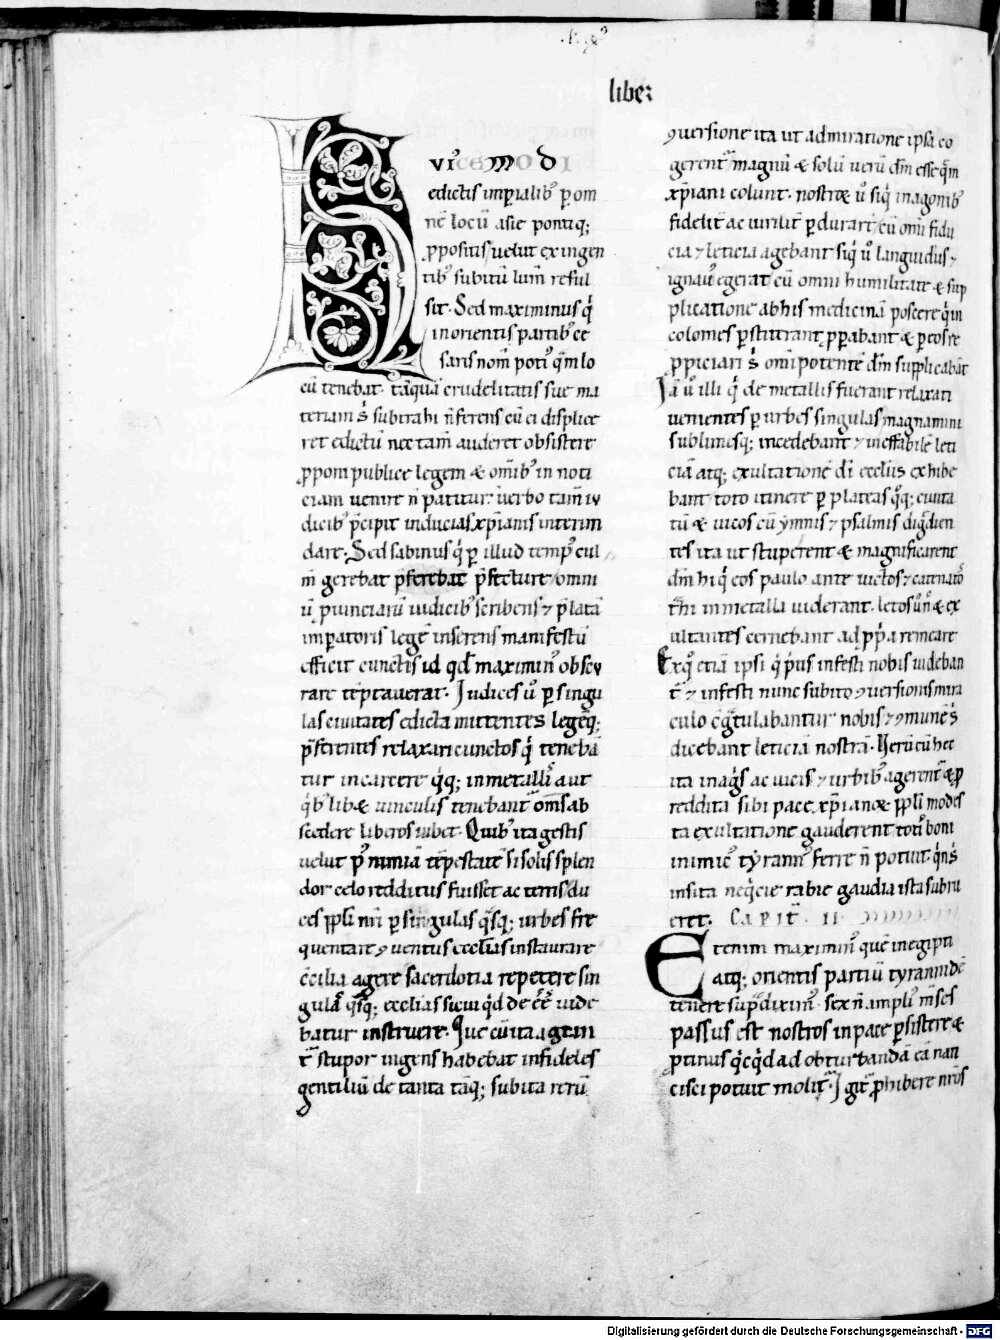 liber
HVI'CEMODI
edictis imperialib' ꝑ om
nē locū asie pontiq;
ꝓpositis uelut ex ingen
tib' subitū lum̄ reful
sit. Sed maximinus q'
in orientis partib' ce
saris nom̄ poti' qm̄ lo
cū tenebat. tāquā crudelitatis sue ma
teriam s' subtrahi n̄ ferens cū ei displice
ret edictū nec tam̄ auderet obsistere
ꝓponi publice legem & om̄ib' in noti
ciam uenire n̄ patitur. uerbo tam̄ iv
dicib' p̄cipit inducias xp̄ianis interim
dare. Sed sabinus q' ꝑ illud temp' cul
m̄ gerebat p̄ferebat p̄fecture omni
ū puinciarū iudicib' scribens ⁊ p̄latā
imperatoris legē inserens manifestū
efficit cunctis id qd̄ maximin' obscv
rare tēptauerat. Judices ū ꝑ singu
las ciuitates edicta mittentes legēq;
p̄ferentes relaxari cunctos q' tenebā
tur in carcere q'q; in metall' aut
q'b'lib& uinculis tenebant' om̄s ab
scedere liberos iubet. Quib' ita gestis
uelut p' nimiā tēpestatē si solis splen
dor celo redditus fuisset ac terris du
ces ppl'i nr̄i ꝑ singulas q'sq; urbes fre
quentare ꝯuentus ecclesias instaurare
c̄cilia agere sacerdotia repetere sin
gulā q'sq; ecclīas sicui q'd de ēē uide
batur instruere. Que cū ita agerent
ur stupor ingens habebat infideles
gentiliū de tanta tāq; subita rerū
ꝯuersione ita ut admiratione ipsa co
gerent' magnū & solū uerū dm̄ esse qm̄
xp̄iani colunt. nostroꝝ ū siq' in agonib'
fidelit' ac uirilit' ꝑdurarunt cū omi fidu
cia ⁊ leticia agebant siq' ū languidus ⁊
ignau' egerat cū omni humilitate & sup
plicatione ab his medicinā poscere q' in
colomes ꝑstiterant ꝓꝑabant & ꝑ eos re
ꝓpiciari s' omīpotentē dm̄ supplicabāt
Jā ū illi q' de metallis fuerant relaxati
uenientes ꝑ urbes singulas magnanimi
sublimesq; incedebant ⁊ ineffabilē leti
ciā atq; exultationē dī ecclīis exhibe
bant toto itinere ꝑ plateas q'q; ciuita
tū & uicos cū ymnis ⁊ psalmis digdien
tes ita ut stuperent & magnificarent
dm̄ hi q' eos paulo ante uictos ⁊ catenato'
trhi in metalla uiderant. letos ū n' & ex
ultantes cernebant ad ꝓpria remeare
Ex q' etiā ipsi q' p'us infesti nobis uideban
t' ⁊ infesti nunc subito ꝯuersionis mira
culo cgratulabantur nobis ⁊ ꝯmunē s'
dicebant leticiā nostrā. Uerū cū hec
ita in agris ac uicis ⁊ urbib' agerent' & ꝓ
reddita sibi pace xp̄ianoꝝ ppl'i modes
ta exultatione gauderent toti' boni
inimic' tyrann' ferre n̄ potuit q'n s'
insita neqcie rabie gaudia ista subru
eret. CAPIT. II
Etenim maximin' quē in egipti
atq; orientis partiū tyrannidē
tenere supdixim' sex n̄ ampli' m̄ses
passus est nostros in pace ꝑsistere &
ꝓtinus q'cq'd ad obturbandā eā nan
cisci potuit molit'. Igit' ꝓhibere nr̄os
Digitalisierung gefördert durch die Deutsche Forschungsgemeinschaft - DFG